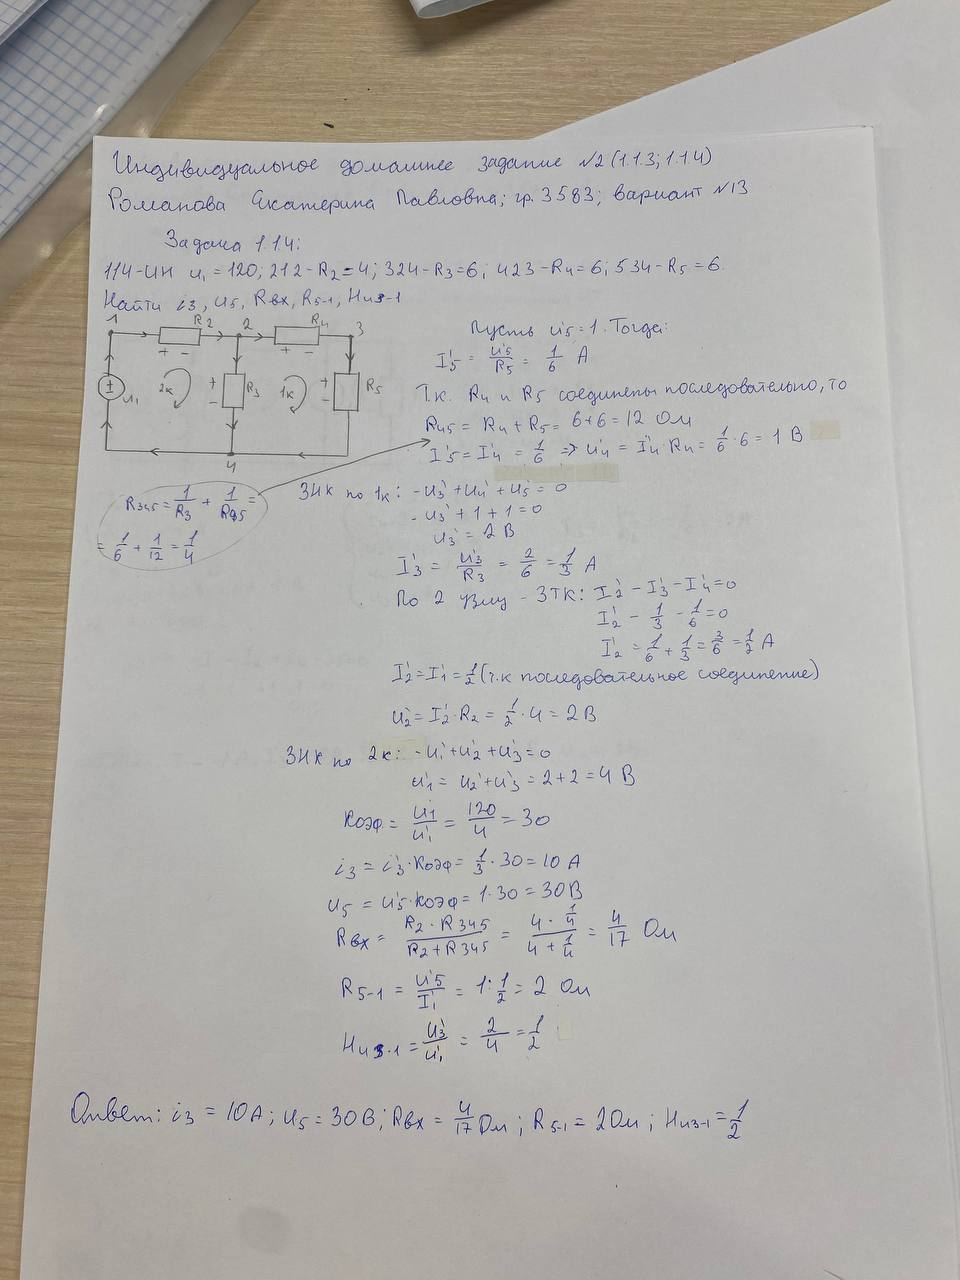 Индивидуальное домашнее задание №2 (1.1.3; 1.1.4)
Романова Екатерина Павловна; гр. 3583; вариант №13
Задача 1.1.4:
114-ИН u₁ = 120; 212-R₂ = 4; 324-R₃ = 6; 423-R₄ = 6; 534-R₅ = 6
Найти i₃, u₅, Rвх, R₅₋₁, Hᵤ₃₋₁
1 R₂ 2 R₄ 3
+ − + −
u₁ 2к + − R₃ 1к + − R₅
4
Пусть u₅' = 1. Тогда:
I₅' = u₅'/R₅ = 1/6 А
Т.к. R₄ и R₅ соединены последовательно, то
R₄₅ = R₄ + R₅ = 6+6 = 12 Ом
I₅' = I₄' = 1/6 ⇒ u₄' = I₄'·R₄ = 1/6·6 = 1 В
R₃₄₅ = 1/R₃ + 1/R₄₅ =
= 1/6 + 1/12 = 1/4
ЗНК по 1к: -u₃' + u₄' + u₅' = 0
- u₃' + 1 + 1 = 0
u₃' = 2 В
I₃' = u₃'/R₃ = 2/6 = 1/3 А
По 2 узлу - ЗТК: I₂' - I₃' - I₄' = 0
I₂' - 1/3 - 1/6 = 0
I₂' = 1/6 + 1/3 = 3/6 = 1/2 А
I₂' = I₁' = 1/2 (т.к последовательное соединение)
u₂' = I₂'·R₂ = 1/2·4 = 2 В
ЗНК по 2к: -u₁' + u₂' + u₃' = 0
u₁' = u₂' + u₃' = 2 + 2 = 4 В
Коэф. = u₁/u₁' = 120/4 = 30
i₃ = i₃'·Коэф = 1/3·30 = 10 А
u₅ = u₅'·коэф = 1·30 = 30 В
Rвх = R₂·R₃₄₅/R₂+R₃₄₅ = 4·1/4/4+1/4 = 4/17 Ом
R₅₋₁ = u₅'/I₁' = 1:1/2 = 2 Ом
Hᵤ₃₋₁ = u₃'/u₁' = 2/4 = 1/2
Ответ: i₃ = 10 А; u₅ = 30 В; Rвх = 4/17 Ом; R₅₋₁ = 2 Ом; Hᵤ₃₋₁ = 1/2